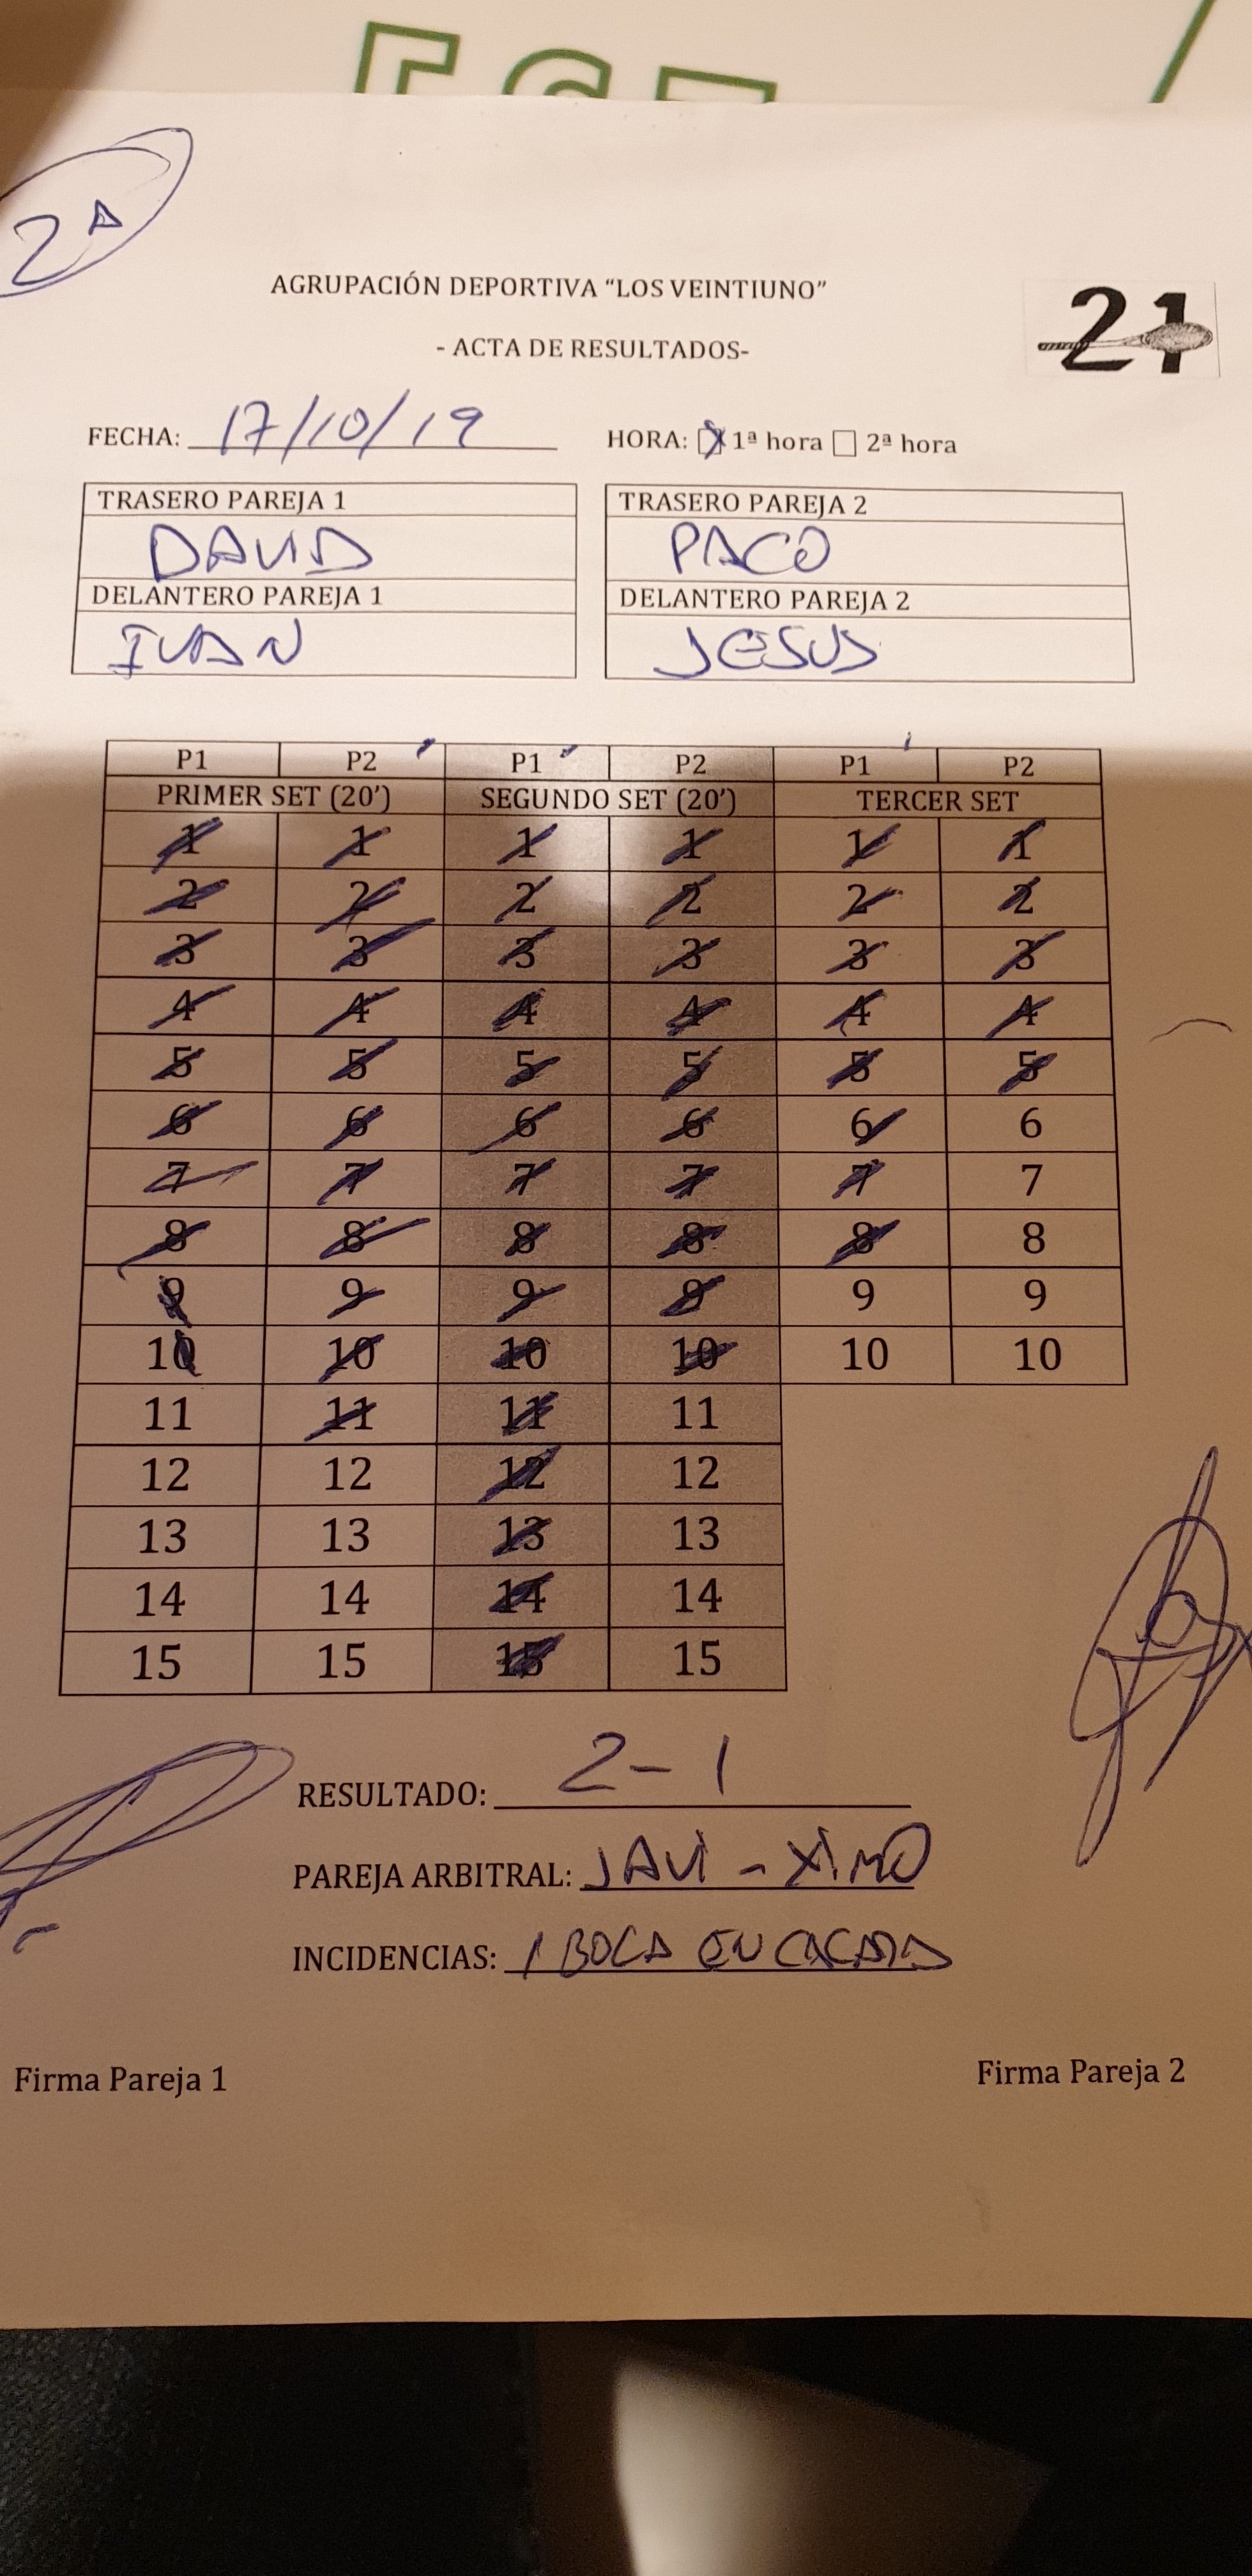 2ª
AGRUPACIÓN DEPORTIVA “LOS VEINTIUNO”
21
- ACTA DE RESULTADOS-
FECHA: 17/10/19 HORA: 1ª hora 2ª hora
TRASERO PAREJA 1 TRASERO PAREJA 2
DAVID PACO
DELANTERO PAREJA 1 DELANTERO PAREJA 2
IVAN JESUS
P1 P2 P1 P2 P1 P2
PRIMER SET (20’) SEGUNDO SET (20’) TERCER SET
1 1 1 1 1 1
2 2 2 2 2 2
3 3 3 3 3 3
4 4 4 4 4 4
5 5 5 5 5 5
6 6 6 6 6 6
7 7 7 7 7 7
8 8 8 8 8 8
9 9 9 9 9 9
10 10 10 10 10 10
11 11 11 11
12 12 12 12
13 13 13 13
14 14 14 14
15 15 15 15
RESULTADO: 2-1
PAREJA ARBITRAL: JAVI - XIMO
INCIDENCIAS: 1 BOCA EN
Firma Pareja 1 Firma Pareja 2